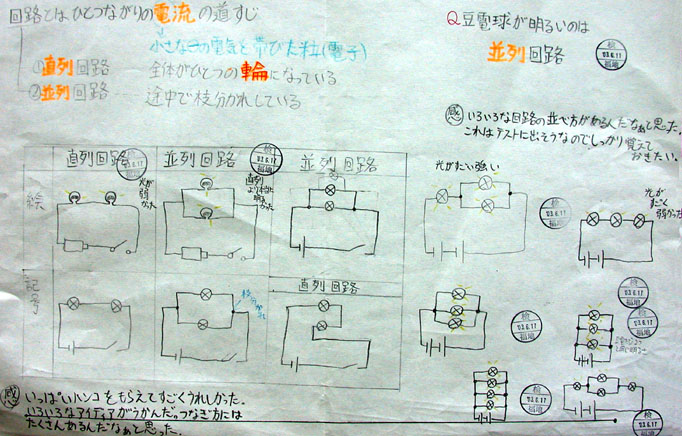 回路とはひとつながりの電流の道すじ
小さな一の電気を帯びた粒(電子)
①直列回路 … 全体がひとつの輪になっている
②並列回路 … 途中で枝分かれしている
Q 豆電球が明るいのは
並列回路
検 '03.6.17 福嶋
感 いろいろな回路の並べ方があるんだなぁと思った。
これはテストに出そうなのでしっかり覚えて
おきたい。
直列回路
検 '03.6.17
並列回路
検 '03.6.17
並列回路
絵
光が
弱かった
直列
より
明る
かった
記号
枝分かれ
直列回路
光がだいぶ強い
検 '03.6.17 福嶋
光が
すごく
弱かった
検 '03.6.17 福嶋
検 '03.6.17 福嶋
検 '03.6.17 福嶋
検 '03.6.17 福嶋
検 '03.6.17 福嶋
感 いっぱいハンコをもらえてすごくうれしかった。
いろいろなアイディアがうかんだ。つなぎ方には
たくさんあるんだなぁと思った。